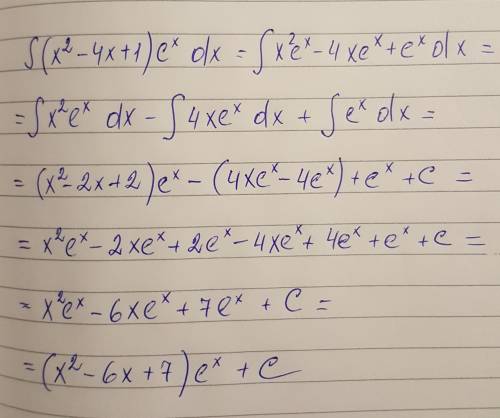 ∫(x²-4x+1)eˣ dx = ∫x²eˣ-4xeˣ+eˣ dx =
= ∫x²eˣ dx - ∫4xeˣ dx + ∫eˣ dx =
= (x²-2x+2)eˣ - (4xeˣ-4eˣ)+eˣ+C =
= x²eˣ-2xeˣ+2eˣ-4xeˣ+4eˣ+eˣ+C =
= x²eˣ-6xeˣ+7eˣ+C =
= (x²-6x+7)eˣ+C